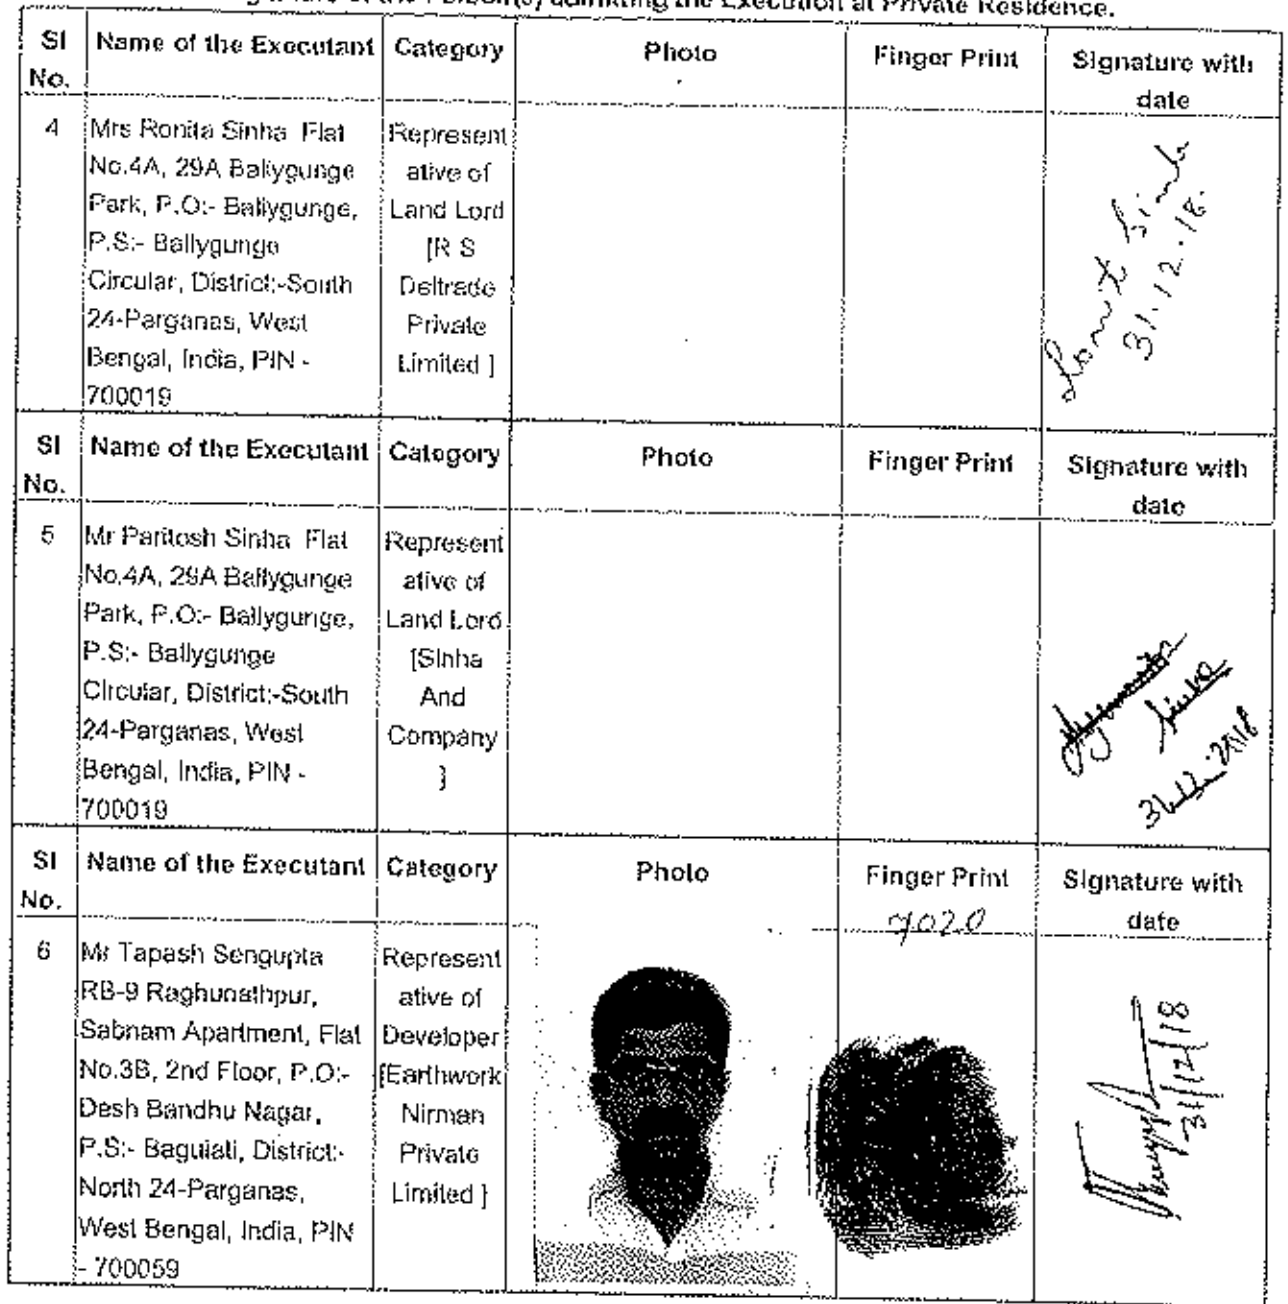 Signature of the Person(s) admitting the Execution at Private Residence.
Sl No. Name of the Executant Category Photo Finger Print Signature with date
4 Mrs Ronita Sinha Flat
No.4A, 29A Ballygunge
Park, P.O:- Ballygunge,
P.S:- Ballygunge
Circular, District:-South
24-Parganas, West
Bengal, India, PIN -
700019
Represent
ative of
Land Lord
[R S
Deltrade
Private
Limited ]
31.12.18.
Sl No. Name of the Executant Category Photo Finger Print Signature with date
5 Mr Paritosh Sinha Flat
No.4A, 29A Ballygunge
Park, P.O:- Ballygunge,
P.S:- Ballygunge
Circular, District:-South
24-Parganas, West
Bengal, India, PIN -
700019
Represent
ative of
Land Lord
[Sinha
And
Company
]
Sinha
31.12.2018
Sl No. Name of the Executant Category Photo Finger Print Signature with date
7020
6 Mr Tapash Sengupta
RB-9 Raghunathpur,
Sabnam Apartment, Flat
No.3B, 2nd Floor, P.O:-
Desh Bandhu Nagar,
P.S:- Baguiati, District:-
North 24-Parganas,
West Bengal, India, PIN
- 700059
Represent
ative of
Developer
[Earthwork
Nirman
Private
Limited ]
31/12/18